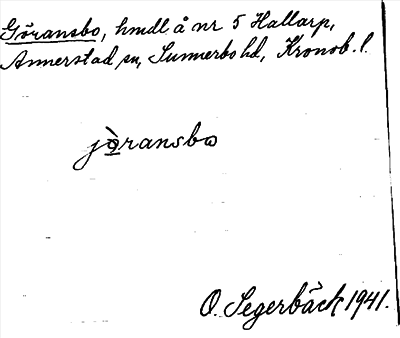 Göransbo, hmdl å nr 5 Hallarp,
Annerstad sn, Sunnerbo hd, Kronob. l.
jö̀ransbo
O. Segerbäck 1941.